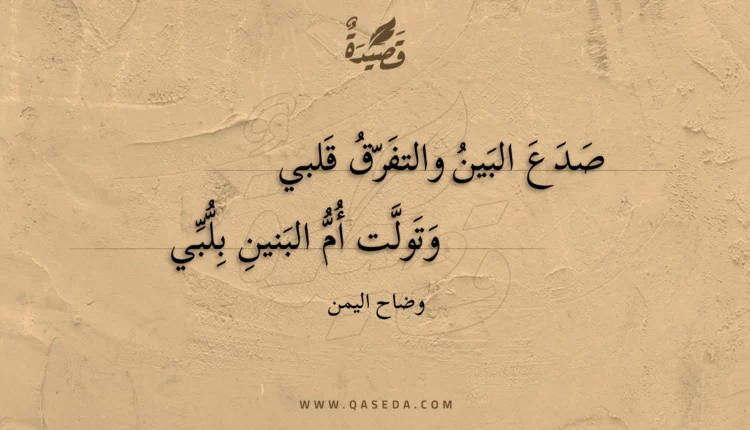 قَصِيْدَةٌ
صَدَعَ البَينُ والتفَرّقُ قَلبي
وَتَولَّت أُمُّ البَنينِ بِلُبِّي
وضاح اليمن
WWW.QASEDA.COM